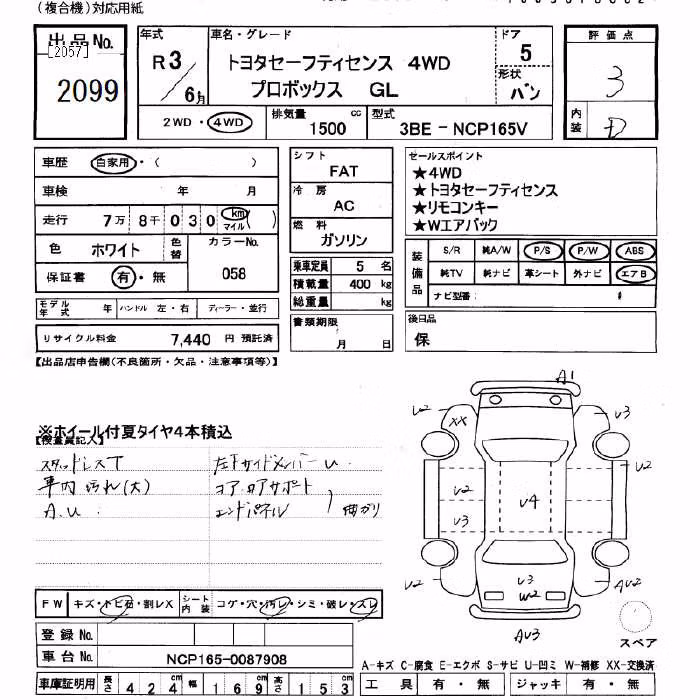 (複合機)対応用紙
出品No.
[2057]
2099
年式
R3/6月
車名・グレード
トヨタセーフティセンス 4WD
プロボックス GL
ドア
5
形状
バン
評価点
3
内装
D
2WD・4WD
排気量
1500 cc
型式
3BE-NCP165V
車歴 自家用・( )
車検 年 月
走行 7万 8千 0 3 0 km マイル ( )
色 ホワイト 色替
カラーNo.
058
保証書 有・無
モデル年式 年 ハンドル 左・右 ディーラー・並行
リサイクル料金 7,440 円 預託済
シフト
FAT
冷房
AC
燃料
ガソリン
乗車定員 5 名
積載量 400 kg
総重量 kg
書類期限
月 日
セールスポイント
★4WD
★トヨタセーフティセンス
★リモコンキー
★Wエアバック
装備品
S/R 純A/W P/S P/W ABS
純TV 純ナビ 革シート 外ナビ エアB
ナビ型番:
後日品
保
【出品店申告欄(不良箇所・欠品・注意事項等)】
※ホイール付夏タイヤ4本積込
【検査員記入】
スタッドレスT
車内 汚れ(大)
A.U.
左下サイドメンバーU.
コア.ロアサポート
エンドパネル
曲がり
A1
V2
XX
V3
V2
V2
V4
V3
V3
W2
V2
AU2
AU3
スペア
FW キズ・トビ石・割レX
シート内装 コゲ・穴・汚レ・シミ・破レ・スレ
登録No.
車台No. NCP165-0087908
車庫証明用 長さ 4 2 4 cm 幅 1 6 9 cm 高さ 1 5 3 cm
A-キズ C-腐食 E-エクボ S-サビ U-凹ミ W-補修 XX-交換済
工具 有・無 ジャッキ 有・無